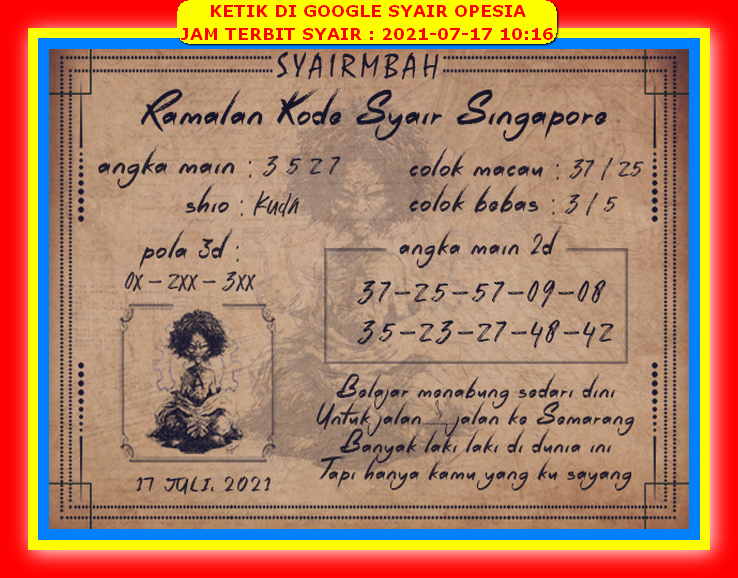 KETIK DI GOOGLE SYAIR OPESIA
JAM TERBIT SYAIR : 2021-07-17 10:16
SYAIRMBAH
Ramalan Kode Syair Singapore
angka main : 3 5 2 7
colok macau : 37 / 25
shio : Kuda
colok bebas : 3 / 5
pola 3d :
0x - 2xx - 3xx
angka main 2d
37-25-57-09-08
35-23-27-48-42
Belajar menabung sedari dini
Untuk jalan _ jalan ke Semarang
Banyak laki laki di dunia ini
Tapi hanya kamu yang ku sayang
17 JULI, 2021